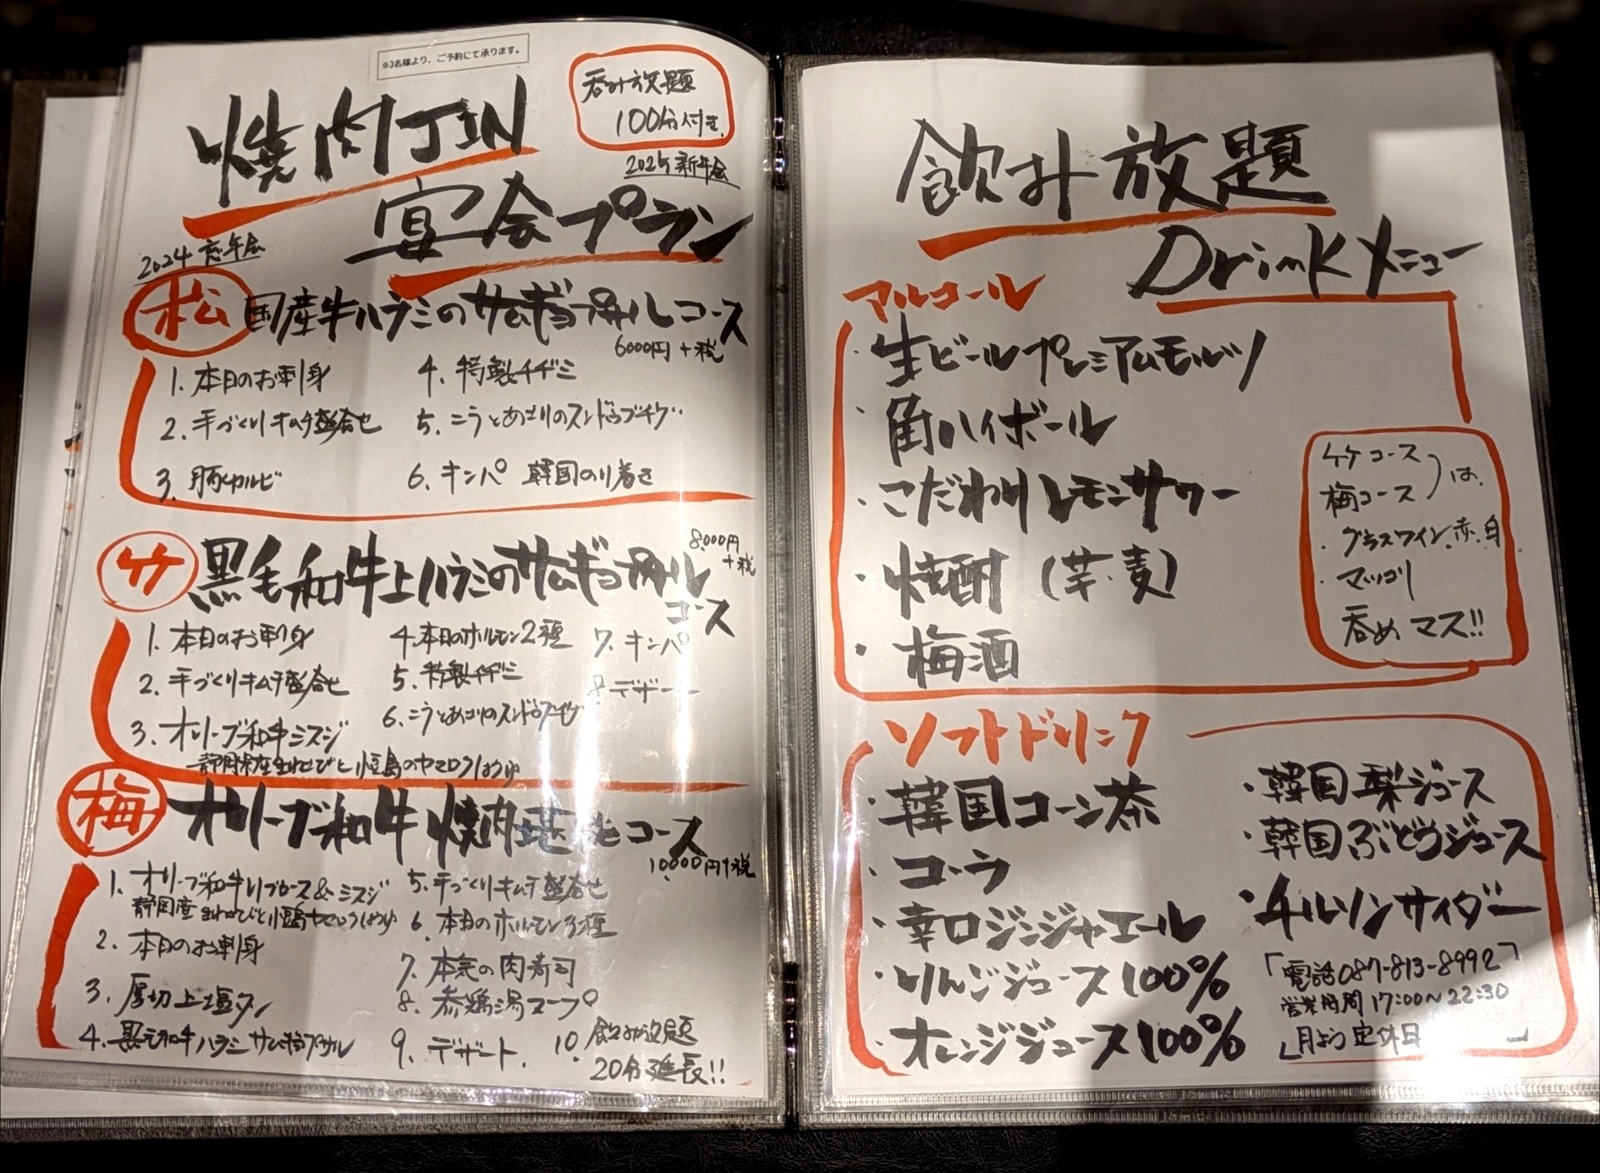 ※3名様より、ご予約にて承ります。
呑み放題
100分付き
焼肉JIN
2025新年会
宴会プラン
2024忘年会
松 国産牛ハラミのサムギョプサルコース
6000円+税
1. 本日のお刺身
2. 手づくりキムチ盛合せ
3. 豚カルビ
4. 特製チヂミ
5. こうとあさりのスンドゥブチゲ
6. キンパ 韓国のり巻き
竹 黒毛和牛上ハラミのサムギョプサル
コース
8000円
+税
1. 本日のお刺身
2. 手づくりキムチ盛合せ
3. オリーブ和牛ミスジ
静岡県産生わさびと小豆島のヤマロクしょうゆ
4. 本日のホルモン2種
5. 特製チヂミ
6. こうとあさりのスンドゥブチゲ
7. キンパ
8. デザート
梅 オリーブ和牛焼肉コース
10,000円+税
1. オリーブ和牛リブロース&ミスジ
静岡産生わさびと小豆島ヤマロクしょうゆ
2. 本日のお刺身
3. 厚切上塩タン
4. 黒毛和牛ハラミサムギョプサル
5. 手づくりキムチ盛合せ
6. 本日のホルモン3種
7. 本気の肉寿司
8. 参鶏湯スープ
9. デザート
10. 飲み放題
20分延長!!
飲み放題
Drinkメニュー
アルコール
・生ビールプレミアムモルツ
・角ハイボール
・こだわりレモンサワー
・焼酎(芋・麦)
・梅酒
竹コース
梅コース)は
・グラスワイン赤.白
・マッコリ
呑めマス!!
ソフトドリンク
・韓国コーン茶
・コーラ
・辛口ジンジャエール
・りんごジュース100%
・オレンジジュース100%
・韓国梨ジュース
・韓国ぶどうジュース
・チルソンサイダー
「電話087-813-8992
営業時間17:00〜22:30
月よう定休日」